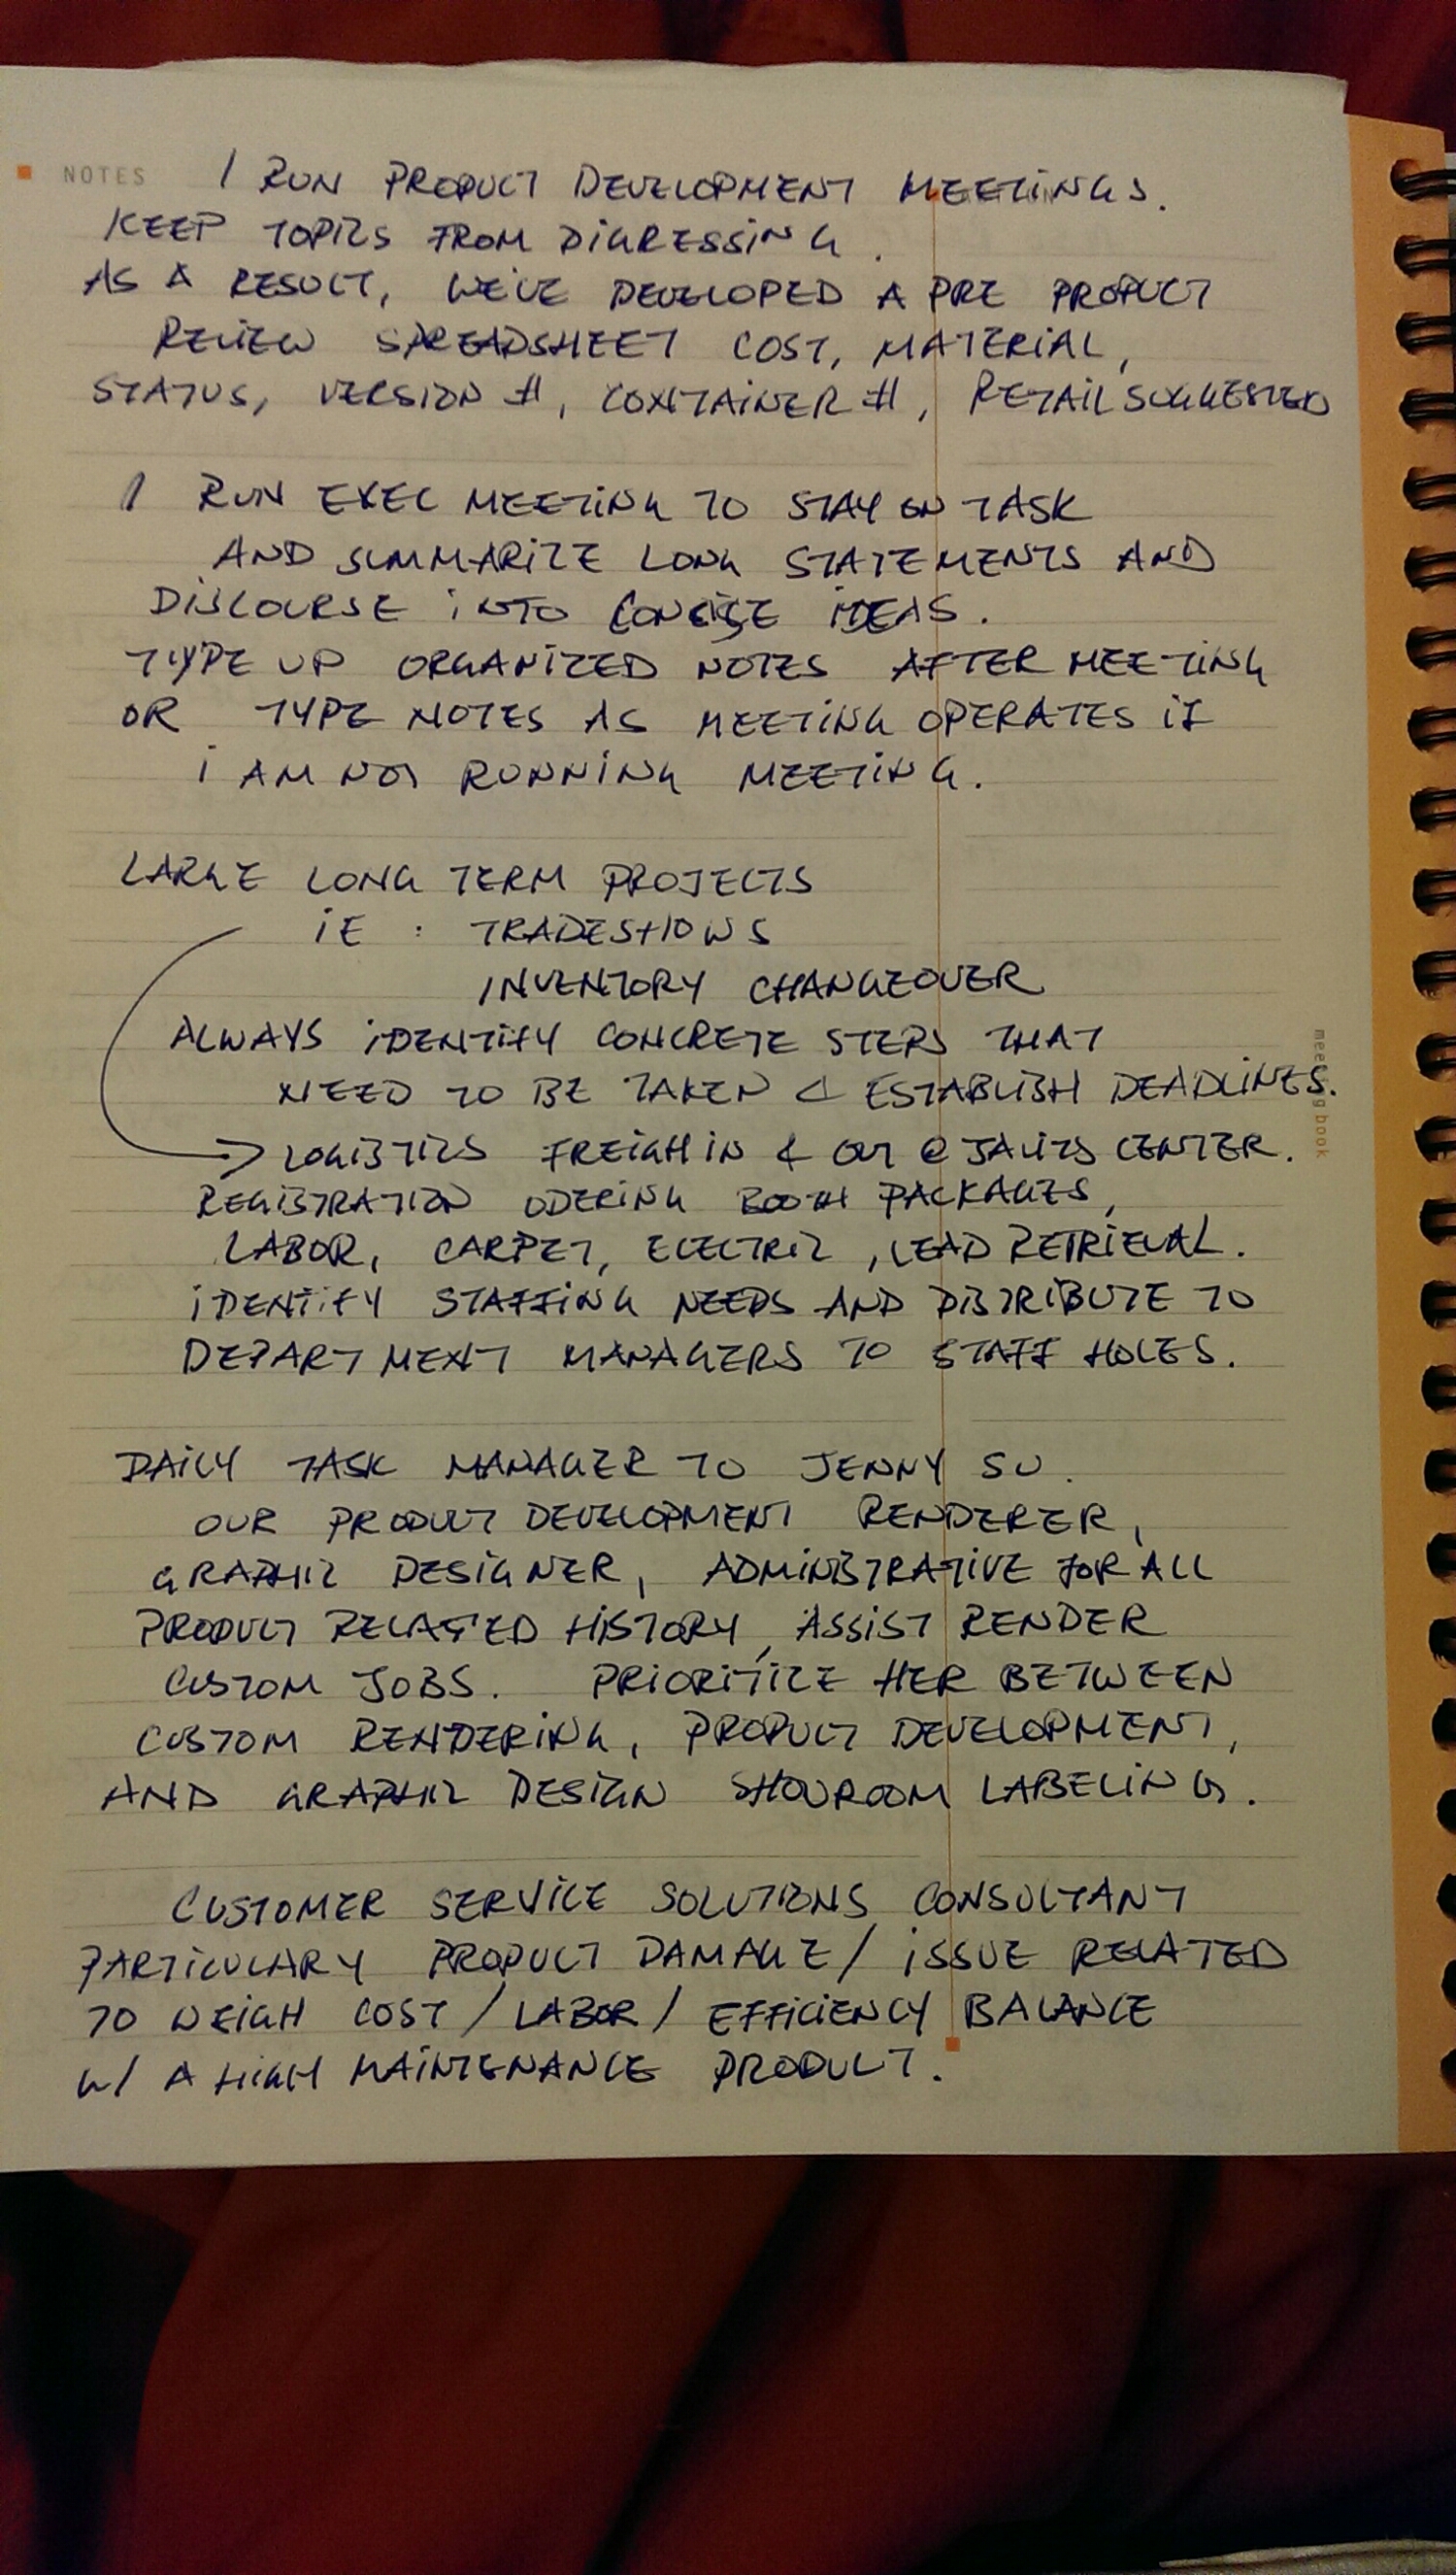 NOTES I RUN PRODUCT DEVELOPMENT MEETINGS.
KEEP TOPICS FROM DIGRESSING.
AS A RESULT, WE'VE DEVELOPED A PRE PRODUCT
REVIEW SPREADSHEET COST, MATERIAL,
STATUS, VERSION #, CONTAINER #, RETAIL SUGGESTED
I RUN EXEC MEETING TO STAY ON TASK
AND SUMMARIZE LONG STATEMENTS AND
DISCOURSE INTO CONCISE IDEAS.
TYPE UP ORGANIZED NOTES AFTER MEETING
OR TYPE NOTES AS MEETING OPERATES IF
I AM NOT RUNNING MEETING.
LARGE LONG TERM PROJECTS
IE : TRADESHOWS
INVENTORY CHANGEOVER
ALWAYS IDENTIFY CONCRETE STEPS THAT
NEED TO BE TAKEN & ESTABLISH DEADLINES.
meeting book
→ LOGISTICS FREIGH IN & OUT @ JAVITS CENTER.
REGISTRATION ODERING BOOTH PACKAGES,
LABOR, CARPET, ELECTRIC, LEAD RETRIEVAL.
IDENTIFY STAFFING NEEDS AND DISTRIBUTE TO
DEPARTMENT MANAGERS TO STAFF HOLES.
DAILY TASK MANAGER TO JENNY SU.
OUR PRODUCT DEVELOPMENT RENDERER,
GRAPHIC DESIGNER, ADMINISTRATIVE FOR ALL
PRODUCT RELATED HISTORY, ASSIST RENDER
CUSTOM JOBS. PRIORITIZE HER BETWEEN
CUSTOM RENDERING, PRODUCT DEVELOPMENT,
AND GRAPHIC DESIGN SHOWROOM LABELING.
CUSTOMER SERVICE SOLUTIONS CONSULTANT
PARTICULARY PRODUCT DAMAGE / ISSUE RELATED
TO WEIGH COST / LABOR / EFFICIENCY BALANCE
W/ A HIGH MAINTENANCE PRODUCT.